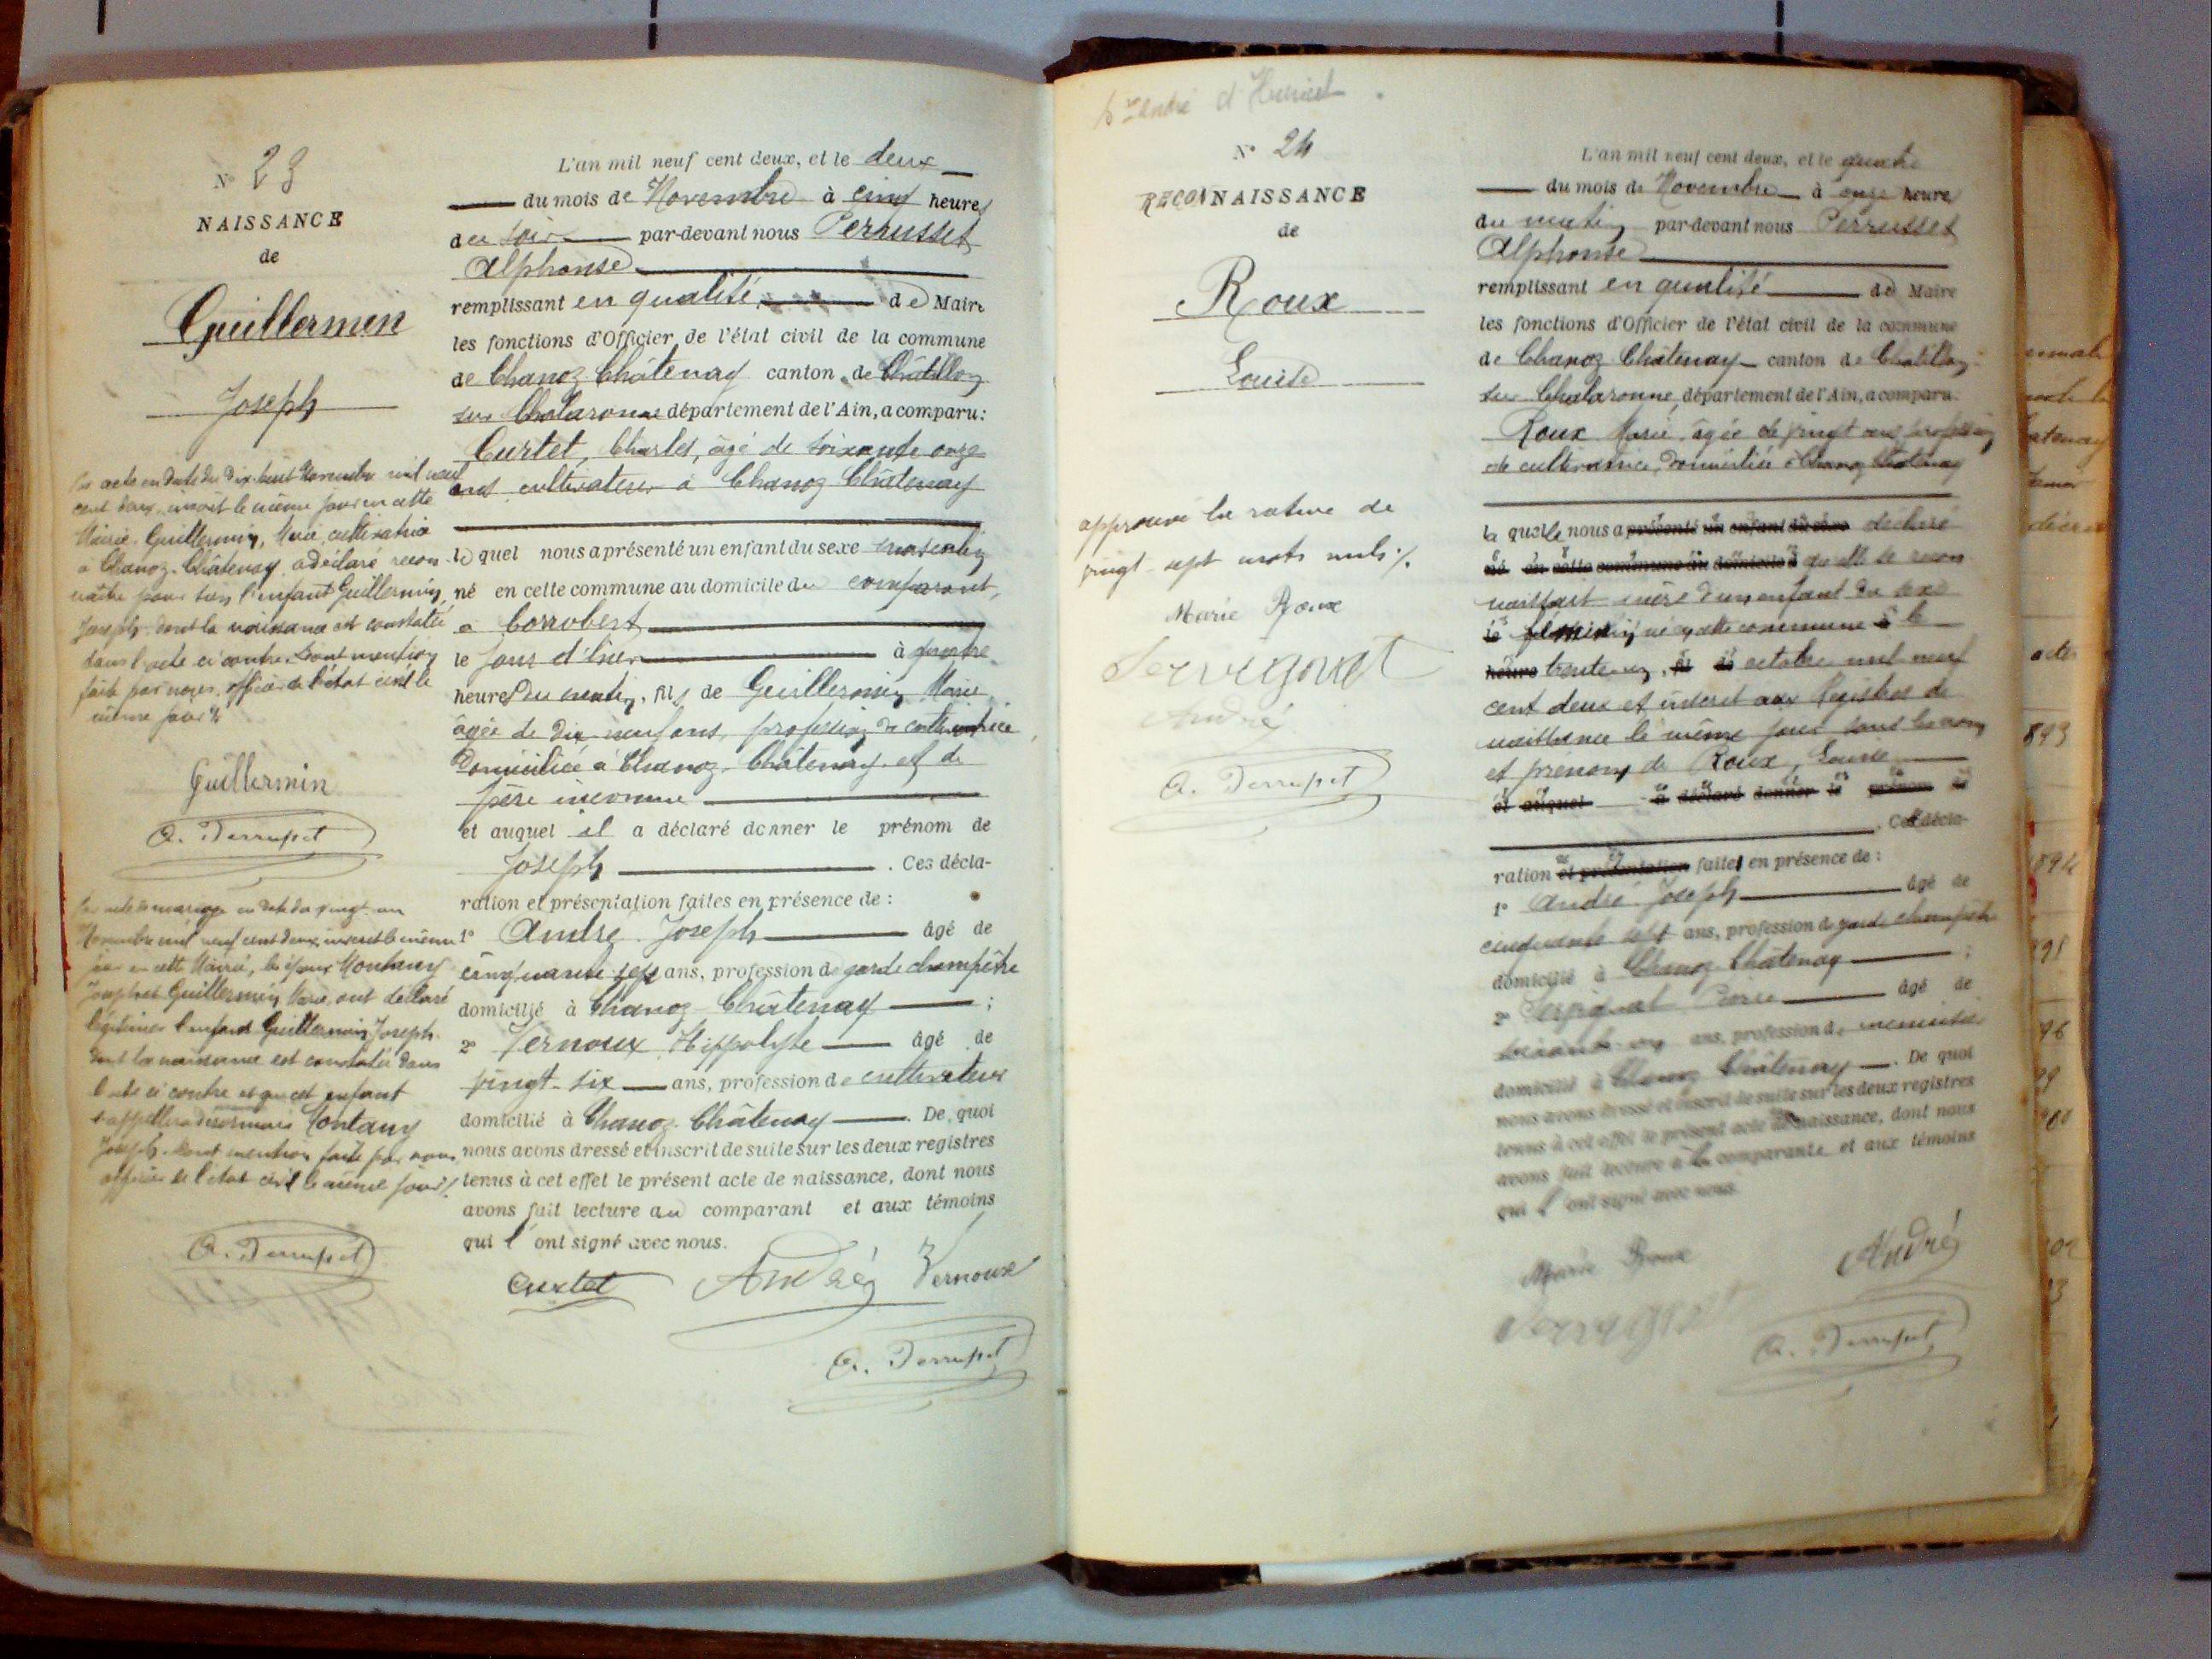 N° 23
NAISSANCE
de
Guillermin
Joseph
Par acte en date du dix-huit Novembre mil neuf
cent deux, inscrit le même jour en cette
Mairie, Guillermin, Marie, cultivatrice
à Chanoz-Châtenay a déclaré recon-
naître pour son l'enfant Guillermin,
Joseph dont la naissance est constatée
dans l'acte ci contre. Dont mention
faite par nous, officier de l'état civil le
même jour
Guillermin
A. Perrusset
Par acte de mariage en date du vingt un
Novembre mil neuf cent deux, inscrit le même
jour en cette Mairie, les époux Montany
Joseph et Guillermin Marie, ont déclaré
légitimer l'enfant Guillermin Joseph.
dont la naissance est constatée dans
l'acte ci contre et que cet enfant
s'appellera désormais Montany
Joseph. Dont mention faite par nous
officier de l'état civil le même jour
A. Perrusset
L'an mil neuf cent deux, et le deux
du mois de Novembre à cinq heures
du soir par-devant nous Perrusset
Alphonse
remplissant en qualité de Maire
les fonctions d'Officier de l'état civil de la commune
de Chanoz-Châtenay canton de Châtillon
sur Chalaronne département de l'Ain, a comparu:
Curtet, Charles, âgé de soixante onze
ans cultivateur à Chanoz Châtenay
le quel nous a présenté un enfant du sexe masculin
né en cette commune au domicile du comparant,
à Corrobert
le jour d'hier à quatre
heures du matin, fils de Guillermin Marie
âgée de dix neuf ans, profession de cultivatrice,
domiciliée à Chanoz-Châtenay et de
père inconnu
et auquel il a déclaré donner le prénom de
Joseph . Ces décla-
ration et présentation faites en présence de :
1° André Joseph âgé de
cinquante sept ans, profession de garde champêtre
domicilié à Chanoz-Châtenay ;
2° Vernoux Hippolyte âgé de
vingt-six ans, profession de cultivateur
domicilié à Chanoz-Châtenay . De quoi
nous avons dressé et inscrit de suite sur les deux registres
tenus à cet effet le présent acte de naissance, dont nous
avons fait lecture au comparant et aux témoins
qui l'ont signé avec nous.
Curtet André Vernoux
A. Perrusset
St André d'Huiriat
N° 24
RECONNAISSANCE
de
Roux
Louise
approuvé la rature de
vingt-sept mots nuls
Marie Roux
Servignat
André
A. Perrusset
L'an mil neuf cent deux, et le quatre
du mois de Novembre à onze heures
du matin par-devant nous Perrusset
Alphonse
remplissant en qualité de Maire
les fonctions d'Officier de l'état civil de la commune
de Chanoz-Châtenay canton de Châtillon
sur Chalaronne, département de l'Ain, a comparu.
Roux Marie, âgée de vingt ans, profession
de cultivatrice, domiciliée à Chanoz Châtenay
la quelle nous a présenté un enfant du sexe déclaré
né en cette commune au domicile d qu'elle se recon-
naissait mère d'un enfant du sexe
le féminin né en cette commune à le
heure trente un, fil de octobre mil neuf
cent deux et inscrit aux Registres de
naissance le même jour sous les nom
et prénom de Roux, Louise
et auquel a déclaré donner le prénom de
. Cette décla-
ration et présentation faites en présence de :
1° André Joseph âgé de
cinquante sept ans, profession de garde champêtre
domicilié à Chanoz-Châtenay ;
2° Servignat Pierre âgé de
soixante ans, profession de menuisier
domicilié à Chanoz Châtenay . De quoi
nous avons dressé et inscrit de suite sur les deux registres
tenus à cet effet le présent acte de naissance, dont nous
avons fait lecture à la comparante et aux témoins
qui l'ont signé avec nous.
Marie Roux André
Servignat
A. Perrusset